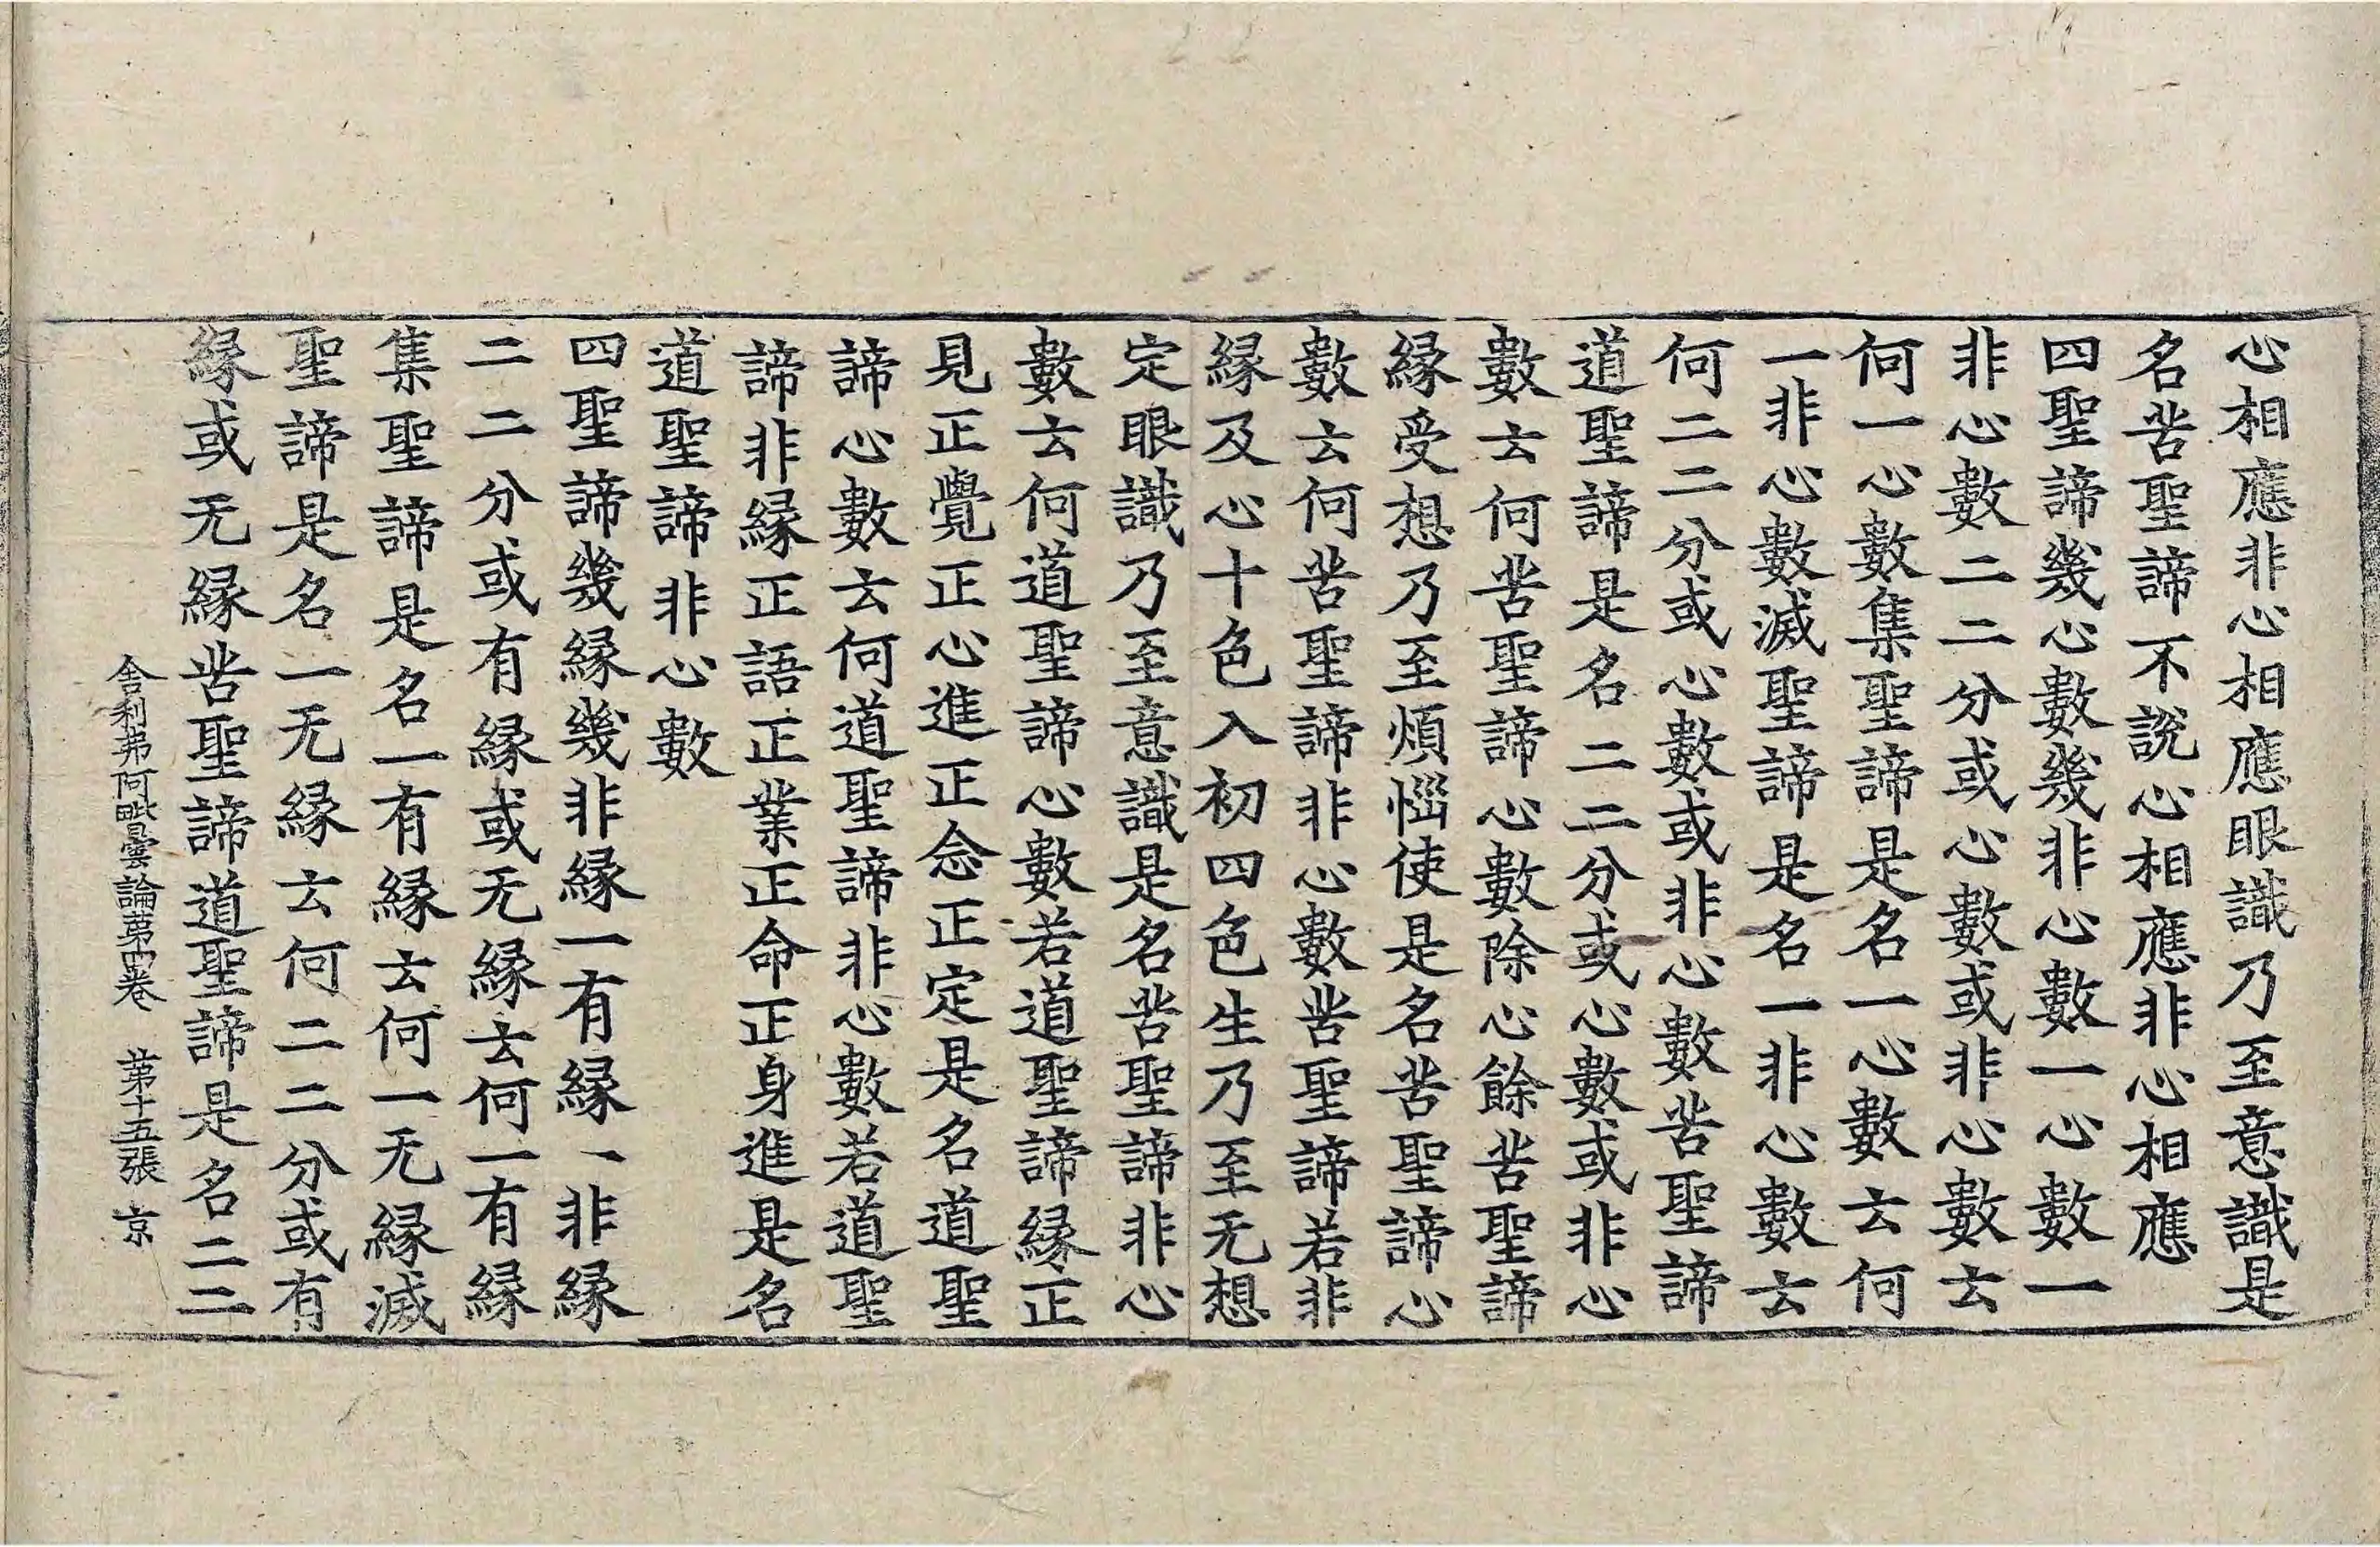 心相應非心相應眼識乃至意識是
名苦聖諦不說心相應非心相應
四聖諦幾心數幾非心數一心數一
非心數二二分或心數或非心數云
何一心數集聖諦是名一心數云何
一非心數滅聖諦是名一非心數云
何二二分或心數或非心數苦聖諦
道聖諦是名二二分或心數或非心
數云何苦聖諦心數除心餘苦聖諦
緣受想乃至煩惱使是名苦聖諦心
數云何苦聖諦非心數苦聖諦若非
緣及心十色入初四色生乃至无想
定眼識乃至意識是名苦聖諦非心
數云何道聖諦心數若道聖諦緣正
見正覺正心進正念正定是名道聖
諦心數云何道聖諦非心數若道聖
諦非緣正語正業正命正身進是名
道聖諦非心數
四聖諦幾緣幾非緣一有緣一非緣
二二分或有緣或无緣云何一有緣
集聖諦是名一有緣云何一无緣滅
聖諦是名一无緣云何二二分或有
緣或无緣苦聖諦道聖諦是名二二
舍利弗阿毗曇論第四卷 第十五張 京